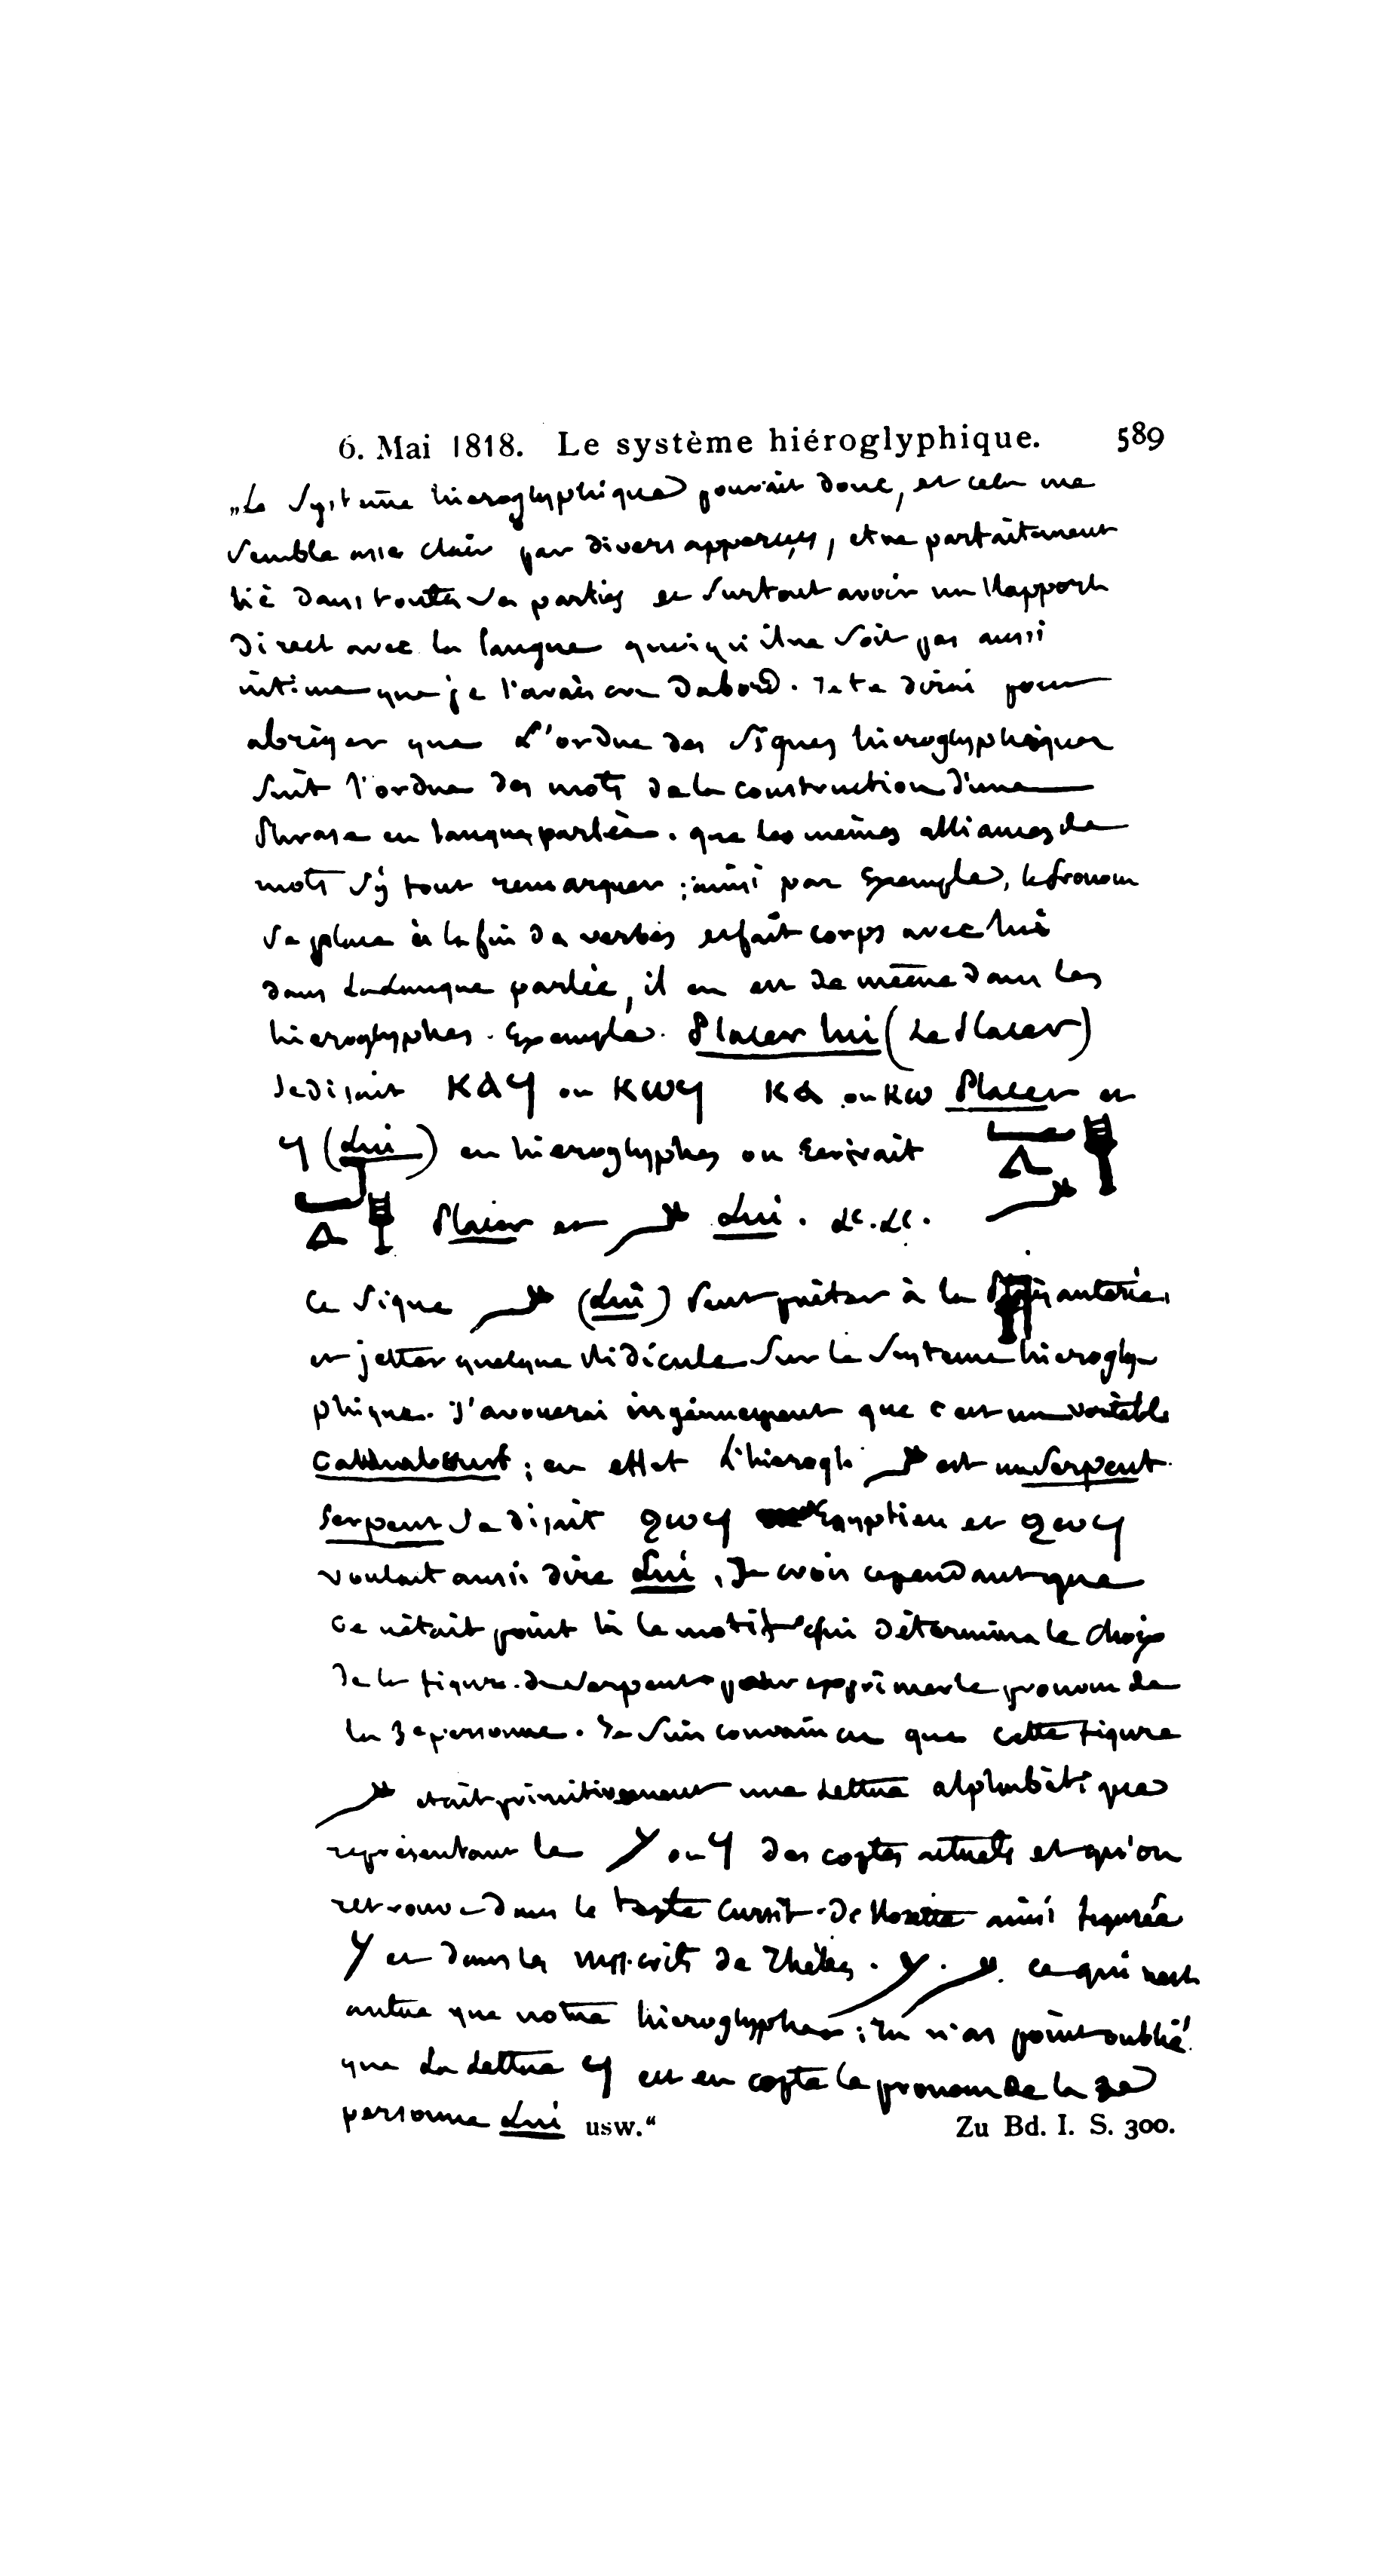 6. Mai 1818. Le système hiéroglyphique. 589
„Le Systeme hieroglyphique pouvait donc, et cela me
semble assez clair par divers apperçus, etre parfaitement
lié dans toutes ses parties et surtout avoir un Rapport
direct avec la langue quoiqu'il ne soit pas aussi
intime que je l'avais cru dabord. Je te dirai pour
abréger que L'ordre des signes hieroglyphiques
suit l'ordre des mots de la construction d'une
Phrase en langue parlée. que les mêmes alliances de
mots s'y font remarquer; ainsi par Exemple, le Pronom
se place à la fin des verbes et fait corps avec lui
dans La Langue parlée, il en est de même dans les
hieroglyphes. Exemple. Placer lui (Le Placer)
se disait ⲕⲁϥ ou ⲕⲱϥ ⲕⲁ ou ⲕⲱ Placer et
ϥ (Lui) en hieroglyphes on Ecrivait
Placer et 𓆑 Lui. &c. &c.
Ce signe 𓆑 (Lui) Peut prêter à la Plaisanterie,
et jetter quelque Ridicule sur le Systeme hierogly-
phique. J'avouerai ingénuement que c'est un véritable
Calembourg; en effet L'hierogl. 𓆑 est un Serpent.
Serpent se disait ϩⲱϥ Egyptien et ϩⲱϥ
voulait aussi dire Lui, Je crois cependant que
ce n'était point là le motif qui détermina le choix
de la figure du serpent pour exprimer le pronom de
la 3e personne. Je suis convaincu que cette figure
𓆑 etait primitivement une Lettre alphabétique
représentant le ϥ ou ϥ des coptes actuels et qu'on
retrouve dans le texte Cursif de Rosette ainsi figurée
Y et dans les mss. de Thèbes. Y. 𓆑. ce qui n'est
autre que notre hieroglyphe; Tu n'as point oublié
que La Lettre ϥ est en copte le pronom de la 3e
personne Lui usw.“ Zu Bd. I. S. 300.